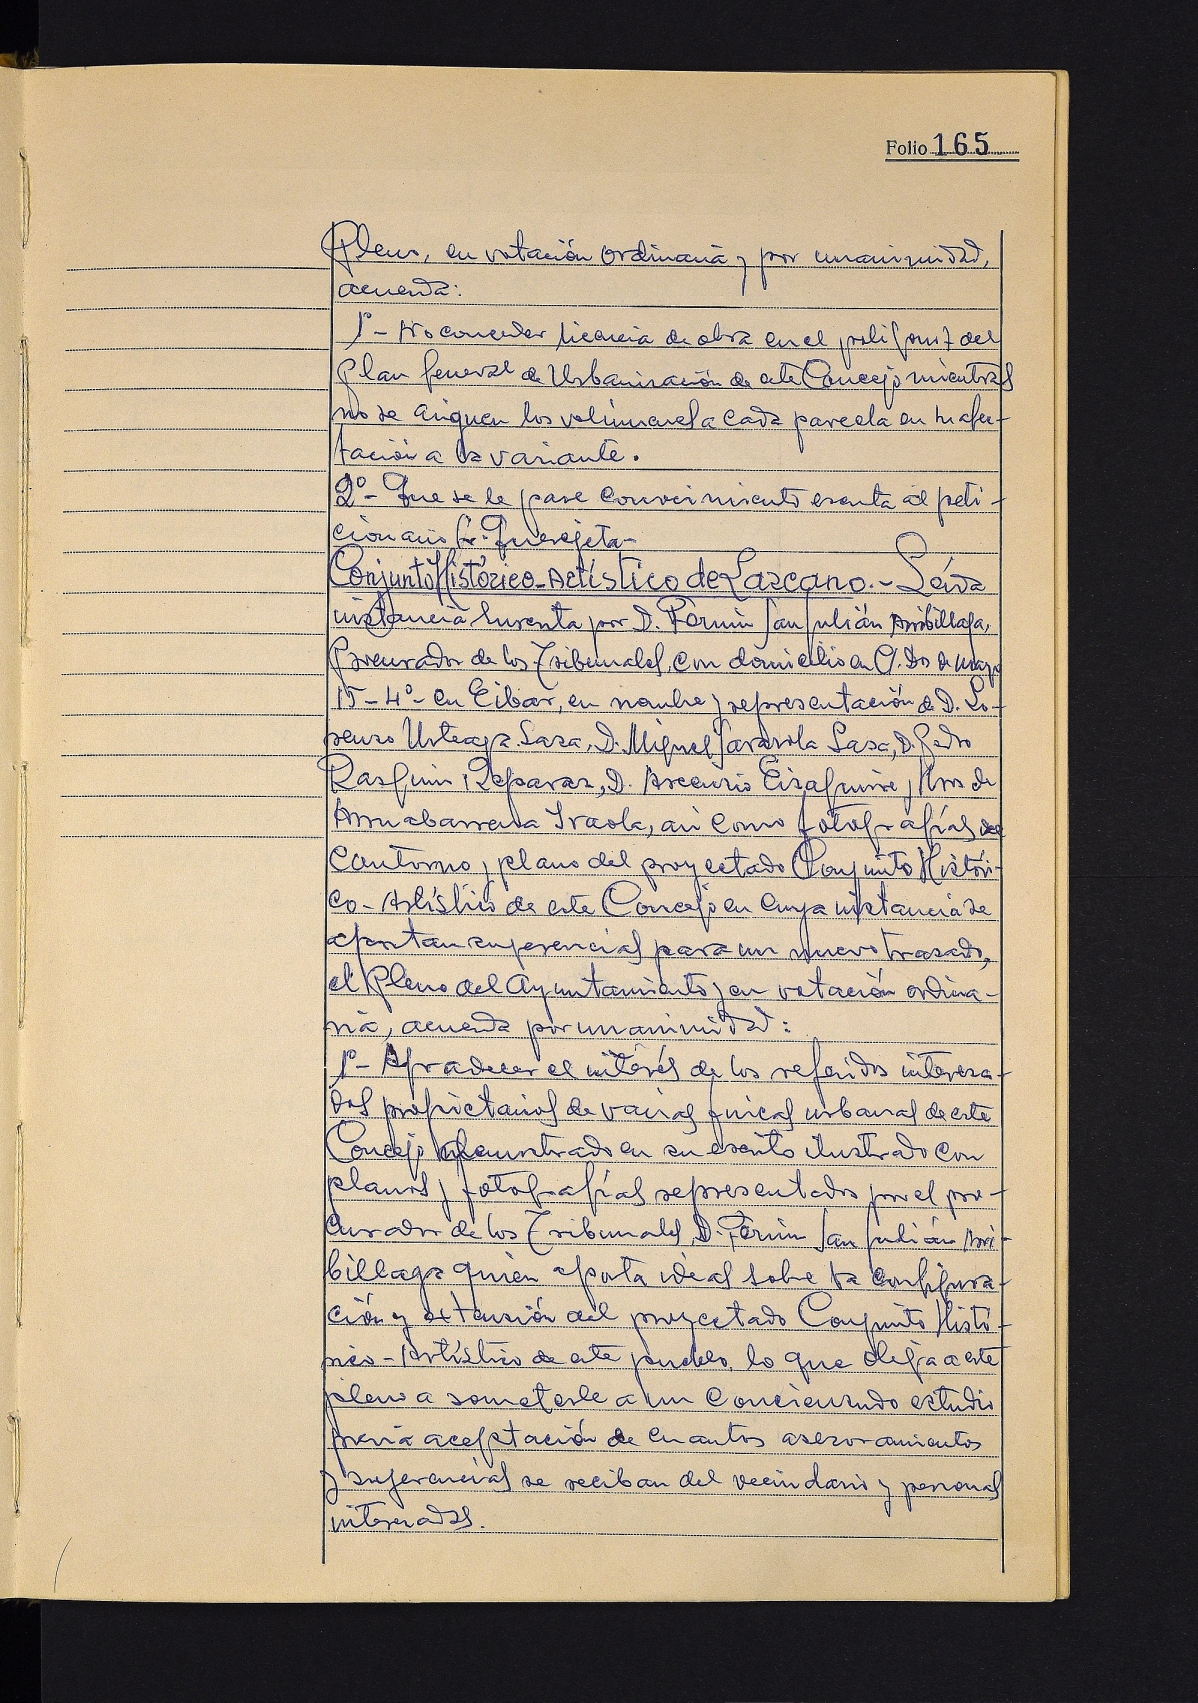 Folio 165
Pleno, en votación ordinaria y por unanimidad,
acuerda:
1º- No conceder licencia de obra en el polígono 7 del
Plan General de Urbanización de este Concejo mientras
no se asignen los volúmenes a cada parcela en su afec-
tación a la variante.
2º- Que se le pase conocimiento escrita al peti-
cionario Sr. Querejeta-
Conjunto Histórico-Artístico de Lazcano.- Leída
instancia suscrita por D. Fermín San Julián Arribillaga,
Procurador de los Tribunales, con domicilio en C. Dos de mayo
15-4º- en Eibar, en nombre y representación de D. Lo-
renzo Urteaga Lasa, D. Miguel Garazola Lasa, D. Pedro
Rasquin Reparaz, D. Ascensio Eizaguirre y Hros de
Arruabarrena Iraola, así como fotografías del
contorno y plano del proyectado Conjunto Históri-
co-Artístico de este Concejo en cuya instancia se
aportan sugerencias para un nuevo trazado,
el Pleno del Ayuntamiento y en votación ordina-
ria, acuerda por unanimidad:
1º- Agradecer el interés de los referidos interesa-
dos propietarios de varias fincas urbanas de este
Concejo demostrado en su escrito ilustrado con
planos y fotografías representados por el pro-
curador de los Tribunales, D. Fermín San Julián Arri-
billaga quien aporta ideas sobre la configura-
ción y extensión del proyectado Conjunto Histó-
rico-Artístico de este pueblo, lo que obliga a este
pleno a someterle a un concienzudo estudio
previa aceptación de cuantos asesoramientos
y sugerencias se reciban del vecindario y personas
interesadas.